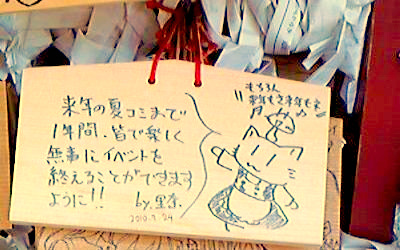 来年の夏コミまで
1年間、皆で楽しく
無事にイベントを
終えることができます
ように!!
by.里奈
2010.7.24
もちろん